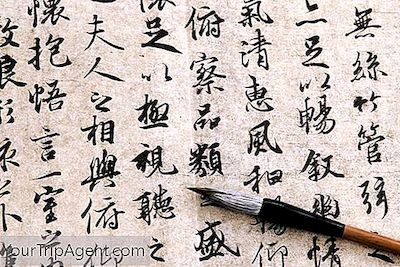 無絲竹管弦之
亦足以暢叙幽情
氣清惠風和暢仰
俯察品類之盛
懷足以極視聽之
夫人之相與俯仰
懷抱悟言一室之
放浪形
YourTripAgent.com